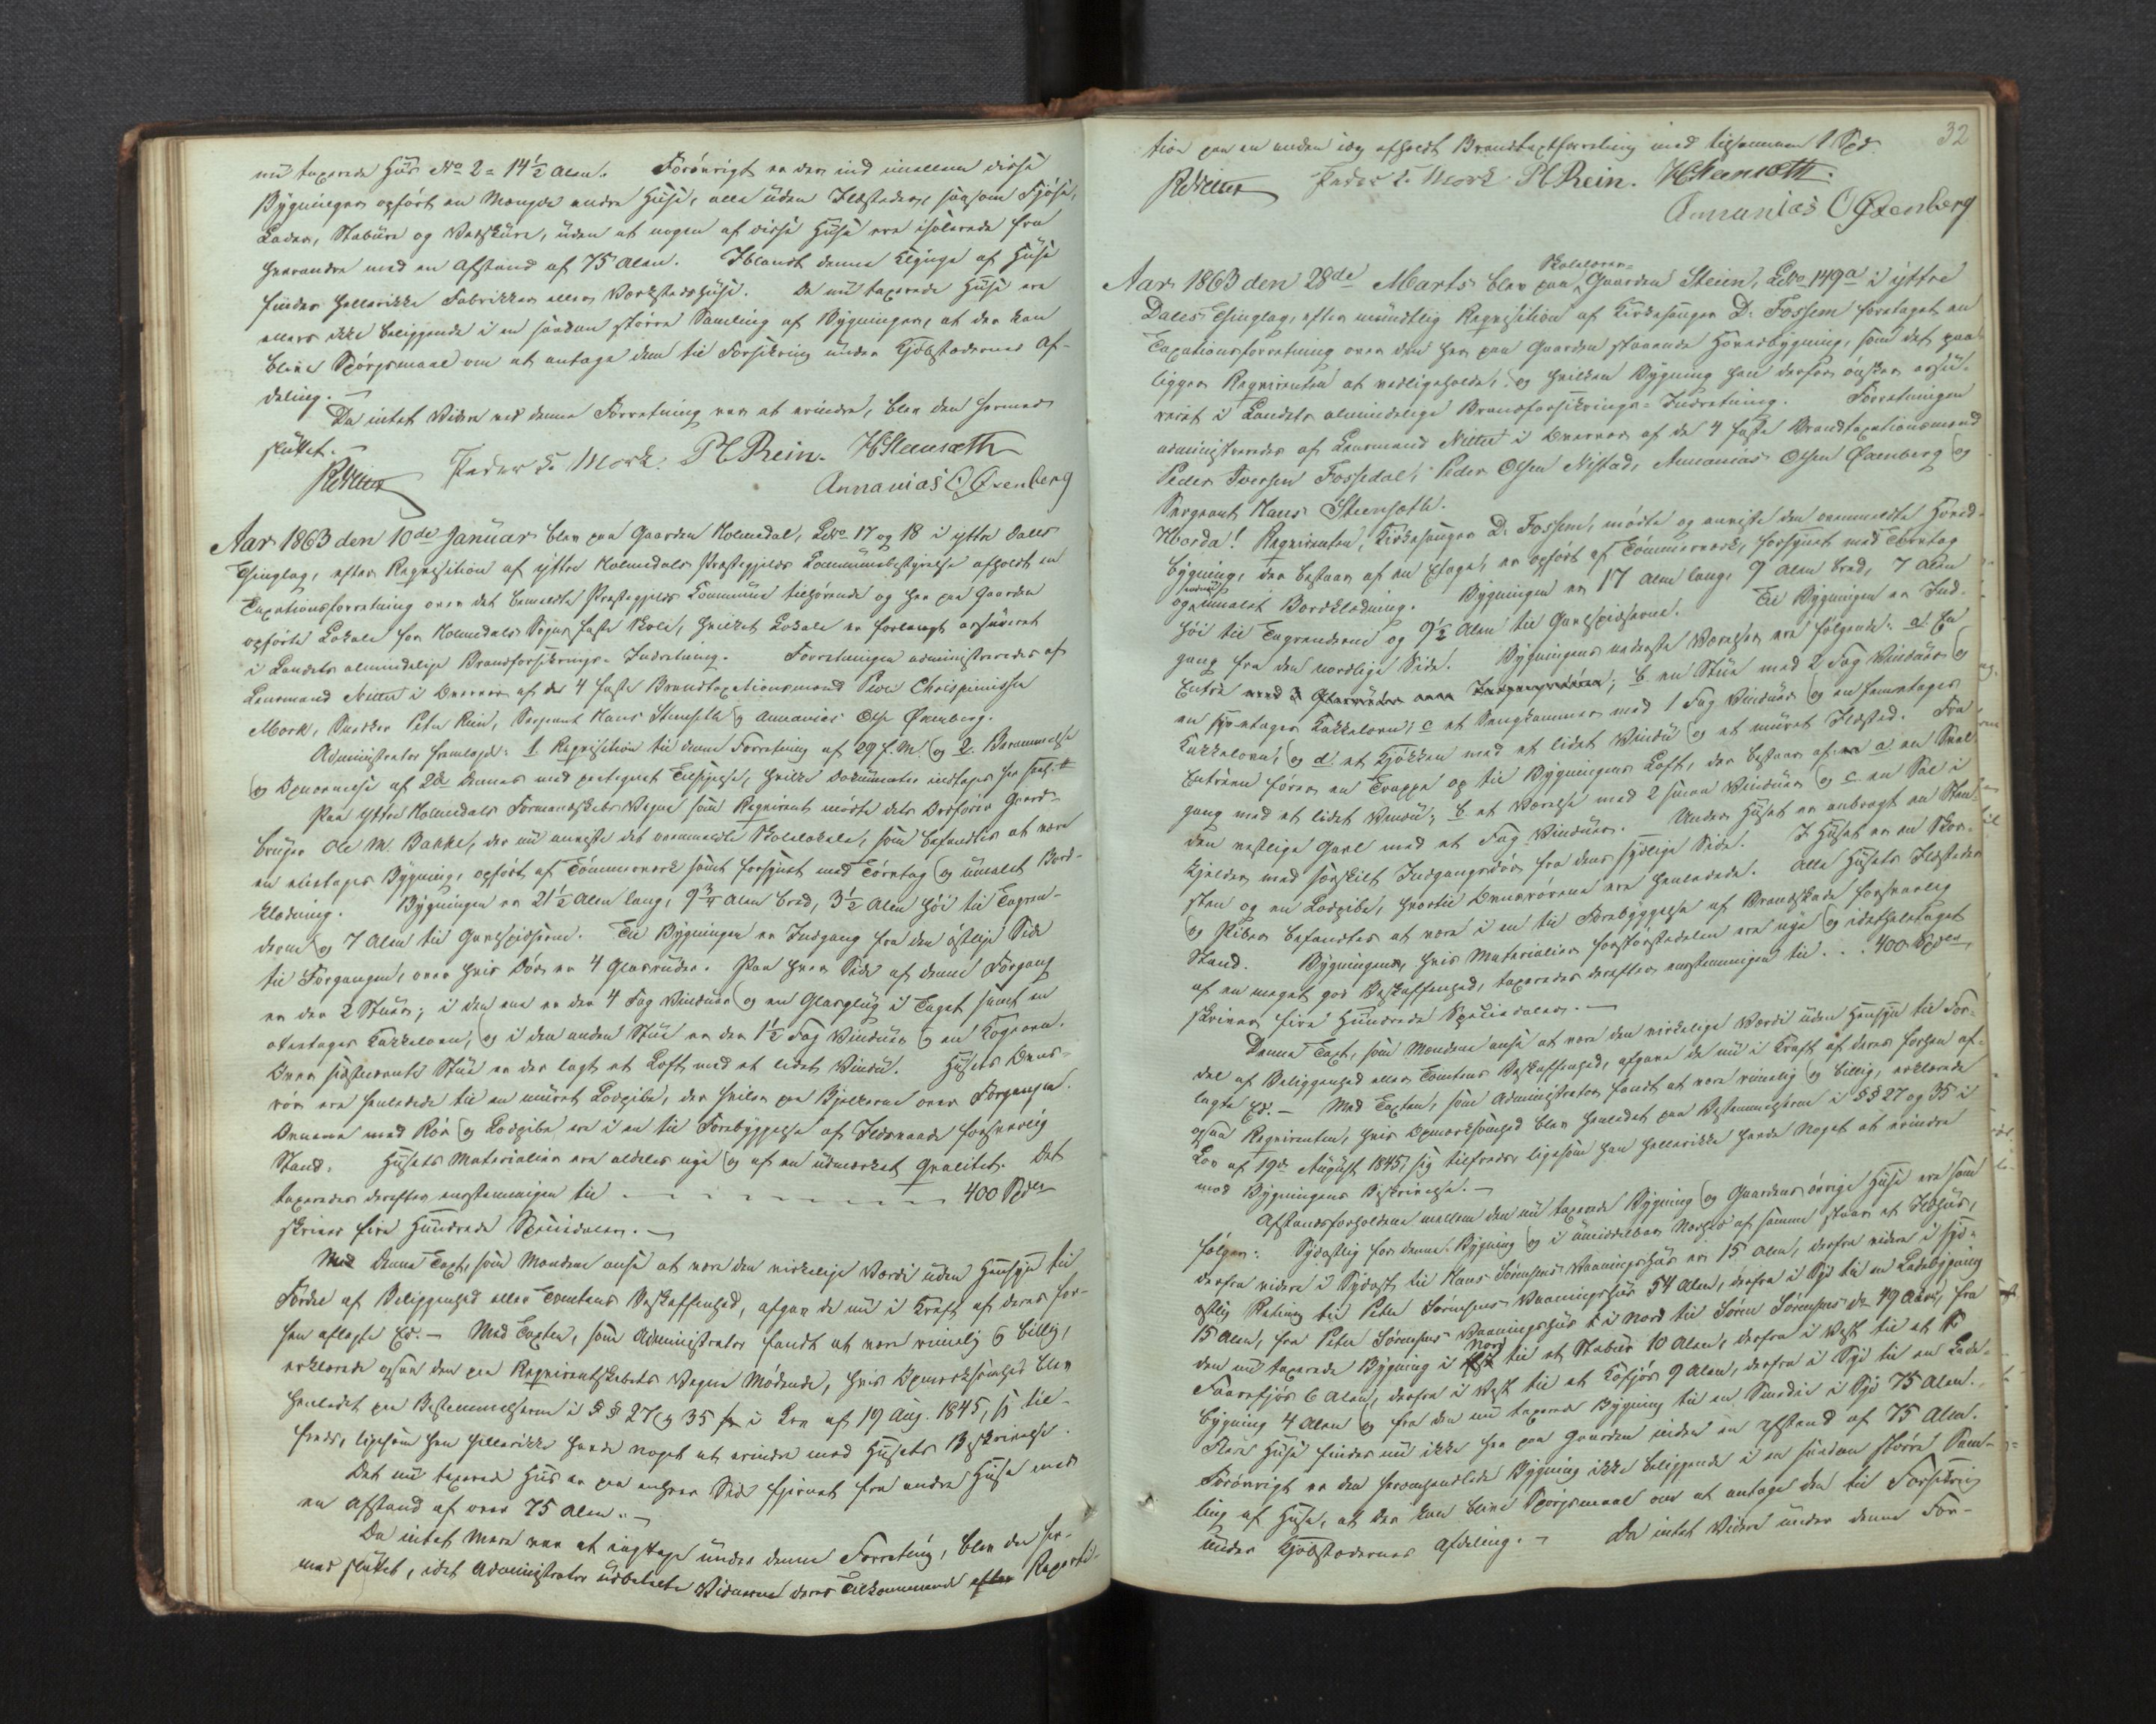 nu taxerede Huus No 2 = 14½ Alen. Forøvrigt er der ind imellem disse
Bygninger opført en Mængde andre Huse, alle uden Ildsteder, saasom Fjøse,
Lader, Stabure og Vedskure, uden at nogen af disse Huse ere isolerede fra
hverandre med en Afstand af 75 Alen. Iblandt denne Klynge af Huse
findes hellerikke Fabrikker eller Værkstedshuse. De nu taxerede Huse ere
ellers ikke beliggende i en saadan større Samling af Bygninger, at der kan
blive Spørgsmaal om at antage dem til Forsikring under Kjøbstædernes Af-
deling. —
Da intet Videre ved denne Forretning var at erindre, blev den hermed
sluttet. —
RNitter Peder C. Mork. PCRein. HSteensæth
Annanias O Øxenberg
Aar 1863 den 10de Januar blev paa Gaarden Holmedal, LNo 17 og 18 i ytre Dales
Thinglag, efter Reqvisition af ytre Holmedals Præstegjelds Kommunebestyrelse afholdt en
Taxationsforretning over det bemeldte Præstegjelds Kommune tilhørende og her paa Gaarden
opførte Lokale for Holmedals Sogns faste Skole, hvilket Lokale er forlangt assureret
i Landets almindelige Brandforsikrings-Indretning. Forretningen administreredes af
Lensmand Nitter i Overvær af de 4 faste Brandtaxationsmænd Peder Chrispinussen
Mork, Snedker Peter Rein, Sergeant Hans Steensæth og Annanias Olsen Øxenberg.
Administrator fremlagde: 1. Reqvisition til denne Forretning af 29 f.M. og 2. Berammelse
og Opnævnelse af 2de dennes med paategnet Tilsigelse, hvilke Dokumenter indtages
Paa ytre Holmedals Formandskabs Vegne som Reqvirent mødte dets Ordfører Gaard-
bruger Ole M. Bakke, der nu anviste det ovenmeldte Skolelokale, som befandtes at være
en etetages Bygning, opført af Tømmerværk samt forsynet med Tørvtag og umalet Bord-
klædning. Bygningen er 21½ Alen lang, 9¾ Alen bred, 3½ Alen høi til Tagren-
derne og 7 Alen til Gavlspidserne. Til Bygningen er Indgang fra den østlige Side
til Forgangen, over hvis Dør er 4 Glasruder. Paa hver Side af denne Forgang
er der 2 Stuer; i den ene er der 4 Fag Vinduer og en Glasglug i Taget samt en
etetages Kakkelovn, og i den anden Stue er der 1½ Fag Vinduer og en Kogeovn.
Over sidstnævnte Stue er der lagt et Loft med et lidet Vindu. Husets Ovns-
rør ere henledede til en muret Lodpibe, der hviler paa Bjelkerne over Forgangen.
Ovnene med Rør og Lodpibe ere i en til Forebyggelse af Ildsvaade forsvarlig
Stand. Husets Materialier ere aldeles nye og af en udmærket Qvalitet. Det
taxeredes derefter enstemmigen til - - - - - - - - - 400 Spdlr
skriver fire Hundrede Speciedaler. —
Med denne Taxt, som Mændene ansee at være den virkelige Værdi uden Hensyn til
Fordel af Beliggenhed eller Tomtens Beskaffenhed, afgav de nu i Kraft af deres for-
hen aflagte Ed. — Med Taxten, som Administrator fandt at være rimelig og billig,
erklærede ogsaa den paa Reqvirentskabets Vegne Mødende, hvis Opmærksomhed blev
henledet paa Bestemmelserne i §§ 27 og 35 i Lov af 19 Aug. 1845, sig til-
freds, ligesom han hellerikke havde noget at erindre mod Husets Beskrivelse.
Det nu taxerede Huus er paa enhver Side fjernet fra andre Huse med
en Afstand af over 75 Alen. —
Da intet mere var at iagttage under denne Forretning, blev den her-
med sluttet, idet Administrator udbetalte Vidnerne deres Tilkommende efter Reparti-
32
tion paa en anden idag afholdt Brandtaxtforretning med tilsammen 1 Spd.
RNitter Peder C. Mork PCRein. HSteensæth.
Annanias O Øxenberg
Aar 1863 den 28de Marts blev paa Skolelærer-Gaarden Steien, LNo 149a i ytre
Dales Thinglag, efter mundtlig Reqvisition af Kirkesanger D. Fossem foretaget en
Taxationsforretning over den her paa Gaarden staaende Hovedbygning, som det paa-
ligger Reqvirenten at vedligeholde, og hvilken Bygning han derfor ønsker assu-
reret i Landets almindelige Brandforsikrings-Indretning. Forretningen
administreredes af Lensmand Nitter i Overvær af de 4 faste Brandtaxationsmænd
Peder Iversen Fossedal, Peder Olsen Nistad, Annanias Olsen Øxenberg og
Sergeant Hans Steensæth.
Hvorda! Reqvirenten, Kirkesanger D. Fossem, mødte og anviste den ovenmeldte Hoved-
bygning, der bestaar af en Etage, er opført af Tømmerværk, forsynet med Tørvtag
og umalet Bordklædning. Bygningen er 17 Alen lang, 9 Alen bred, 7 Alen
høi til Tagrenderne og 9½ Alen til Gavlspidserne. Til Bygningen er Ind-
gang fra den nordlige Side. Bygningens nederste Værelser ere følgende: a. En
Entre med 3 Glasruder over Indgangsdøren; b. en Stue med 2 Fag Vinduer og
en toetages Kakkelovn, c. et Sengkammer med 1 Fag Vinduer og en femetages
Kakkelovn, og d. et Kjøkken med et lidet Vindu og et muret Ildsted. Fra
Entreen fører en Trappe op til Bygningens Loft, der bestaar af a. en Sval-
gang med et lidet Vindu; b. et Værelse med 2 smaa Vinduer og c. en Sal i
den vestlige Gavl med et Fag Vinduer. Under Huset er anbragt en Steen-
kjelder med særskilt Indgangsdør fra dens sydlige Side. I Huset er en Skor-
sten og en Lodpibe, hvortil Ovnsrørene ere henledede. Alle Husets Ildsteder
og Piber befandtes at være i en til Forebyggelse af Brandskade forsvarlig
Stand. Bygningen, hvis Materialier forstørstedelen ere nye og idethele taget
af en meget god Beskaffenhed, taxeredes derefter enstemmigen til . . . 400 Spdlr,
skriver fire Hundrede Speciedaler. —
Denne Taxt, som Mændene ansee at være den virkelige Værdi uden Hensyn til For-
del af Beliggenhed eller Tomtens Beskaffenhed, afgave de nu i Kraft af deres forhen af-
lagte Ed. — Med Taxten, som Administrator fandt at være rimelig og billig, erklærede
ogsaa Reqvirenten, hvis Opmærksomhed blev henledet paa Bestemmelserne i §§ 27 og 35 i
Lov af 19de August 1845, sig tilfreds, ligesom han hellerikke havde Noget at erindre
mod Bygningens Beskrivelse. —
Afstandsforholdene mellem den nu taxerede Bygning og Gaardens øvrige Huse ere som
følger: Sydostlig for denne Bygning og i umiddelbar Nærhed af samme staar et Ildhuus,
derfra videre i Sydost til Hans Sørensens Vaaningshuus er 15 Alen, derfra videre i syd-
ostlig Retning til Peder Sørensens Vaaningshuus 54 Alen, derfra i Syd til en Ladebygning
15 Alen, fra Peder Sørensens Vaaningshuus i Nord til Søren Sørensens do 49 Alen, fra
den nu taxerede Bygning i Nord til et Stabur 10 Alen, derfra i Vest til et
Faarefjøs 6 Alen, derfra i Vest til et Kofjøs 9 Alen, derfra i Syd til en Lade-
bygning 4 Alen og fra den nu taxerede Bygning til en Smedie i Syd 75 Alen.
Flere Huse findes nu ikke her paa Gaarden inden en Afstand af 75 Alen.
Forøvrigt er den heromhandlede Bygning ikke beliggende i en saadan større Sam-
ling af Huse, at der kan blive Spørgsmaal om at antage den til Forsikring
under Kjøbstædernes Afdeling. — Da intet Videre under denne For-